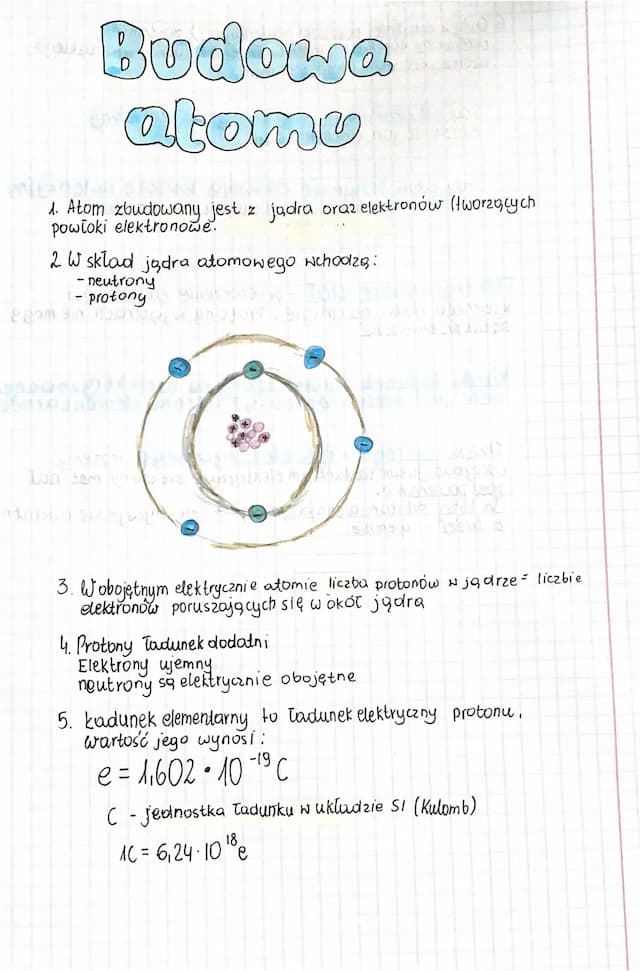 Budowa
atomu
1. Atom zbudowany jest z jądra oraz elektronów (tworzących
powłoki elektronowe.
2. W skład jądra atomowego wchodzą:
- neutrony
- protony
3. W obojętnym elektrycznie atomie liczba protonów w jądrze = liczbie
elektronów poruszających się w okół jądra
4. Protony ładunek dodatni
Elektrony ujemny
neutrony są elektrycznie obojętne
5. Ładunek elementarny to ładunek elektryczny protonu,
wartość jego wynosi:
e = 1,602 · 10⁻¹⁹ C
C - jednostka ładunku w układzie SI (Kulomb)
1C = 6,24 · 10¹⁸ e